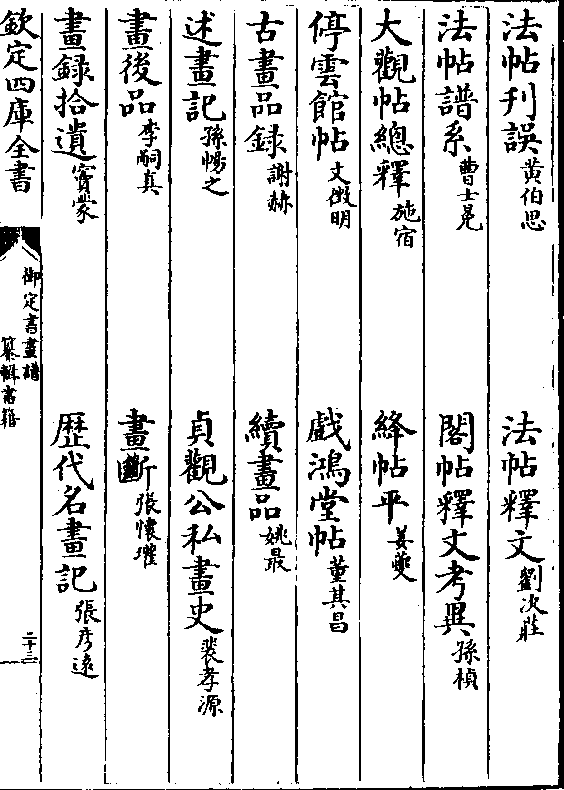 法帖刋誤黄伯思　法帖釋文劉次莊
法帖譜系曹士冕　閣帖釋文考異孫楨
大觀帖總釋施宿　絳帖平姜夔
停雲館帖文徴明　戲鴻堂帖董其昌
古畫品録謝赫　續畫品姚最
述畫記孫暢之　貞觀公私畫史裴孝源
畫後品李嗣真　畫斷張懷瓘
畫録拾遺竇蒙　歴代名畫記張彦逺
欽定四庫全書
御定書畫譜
纂輯書籍
二十三